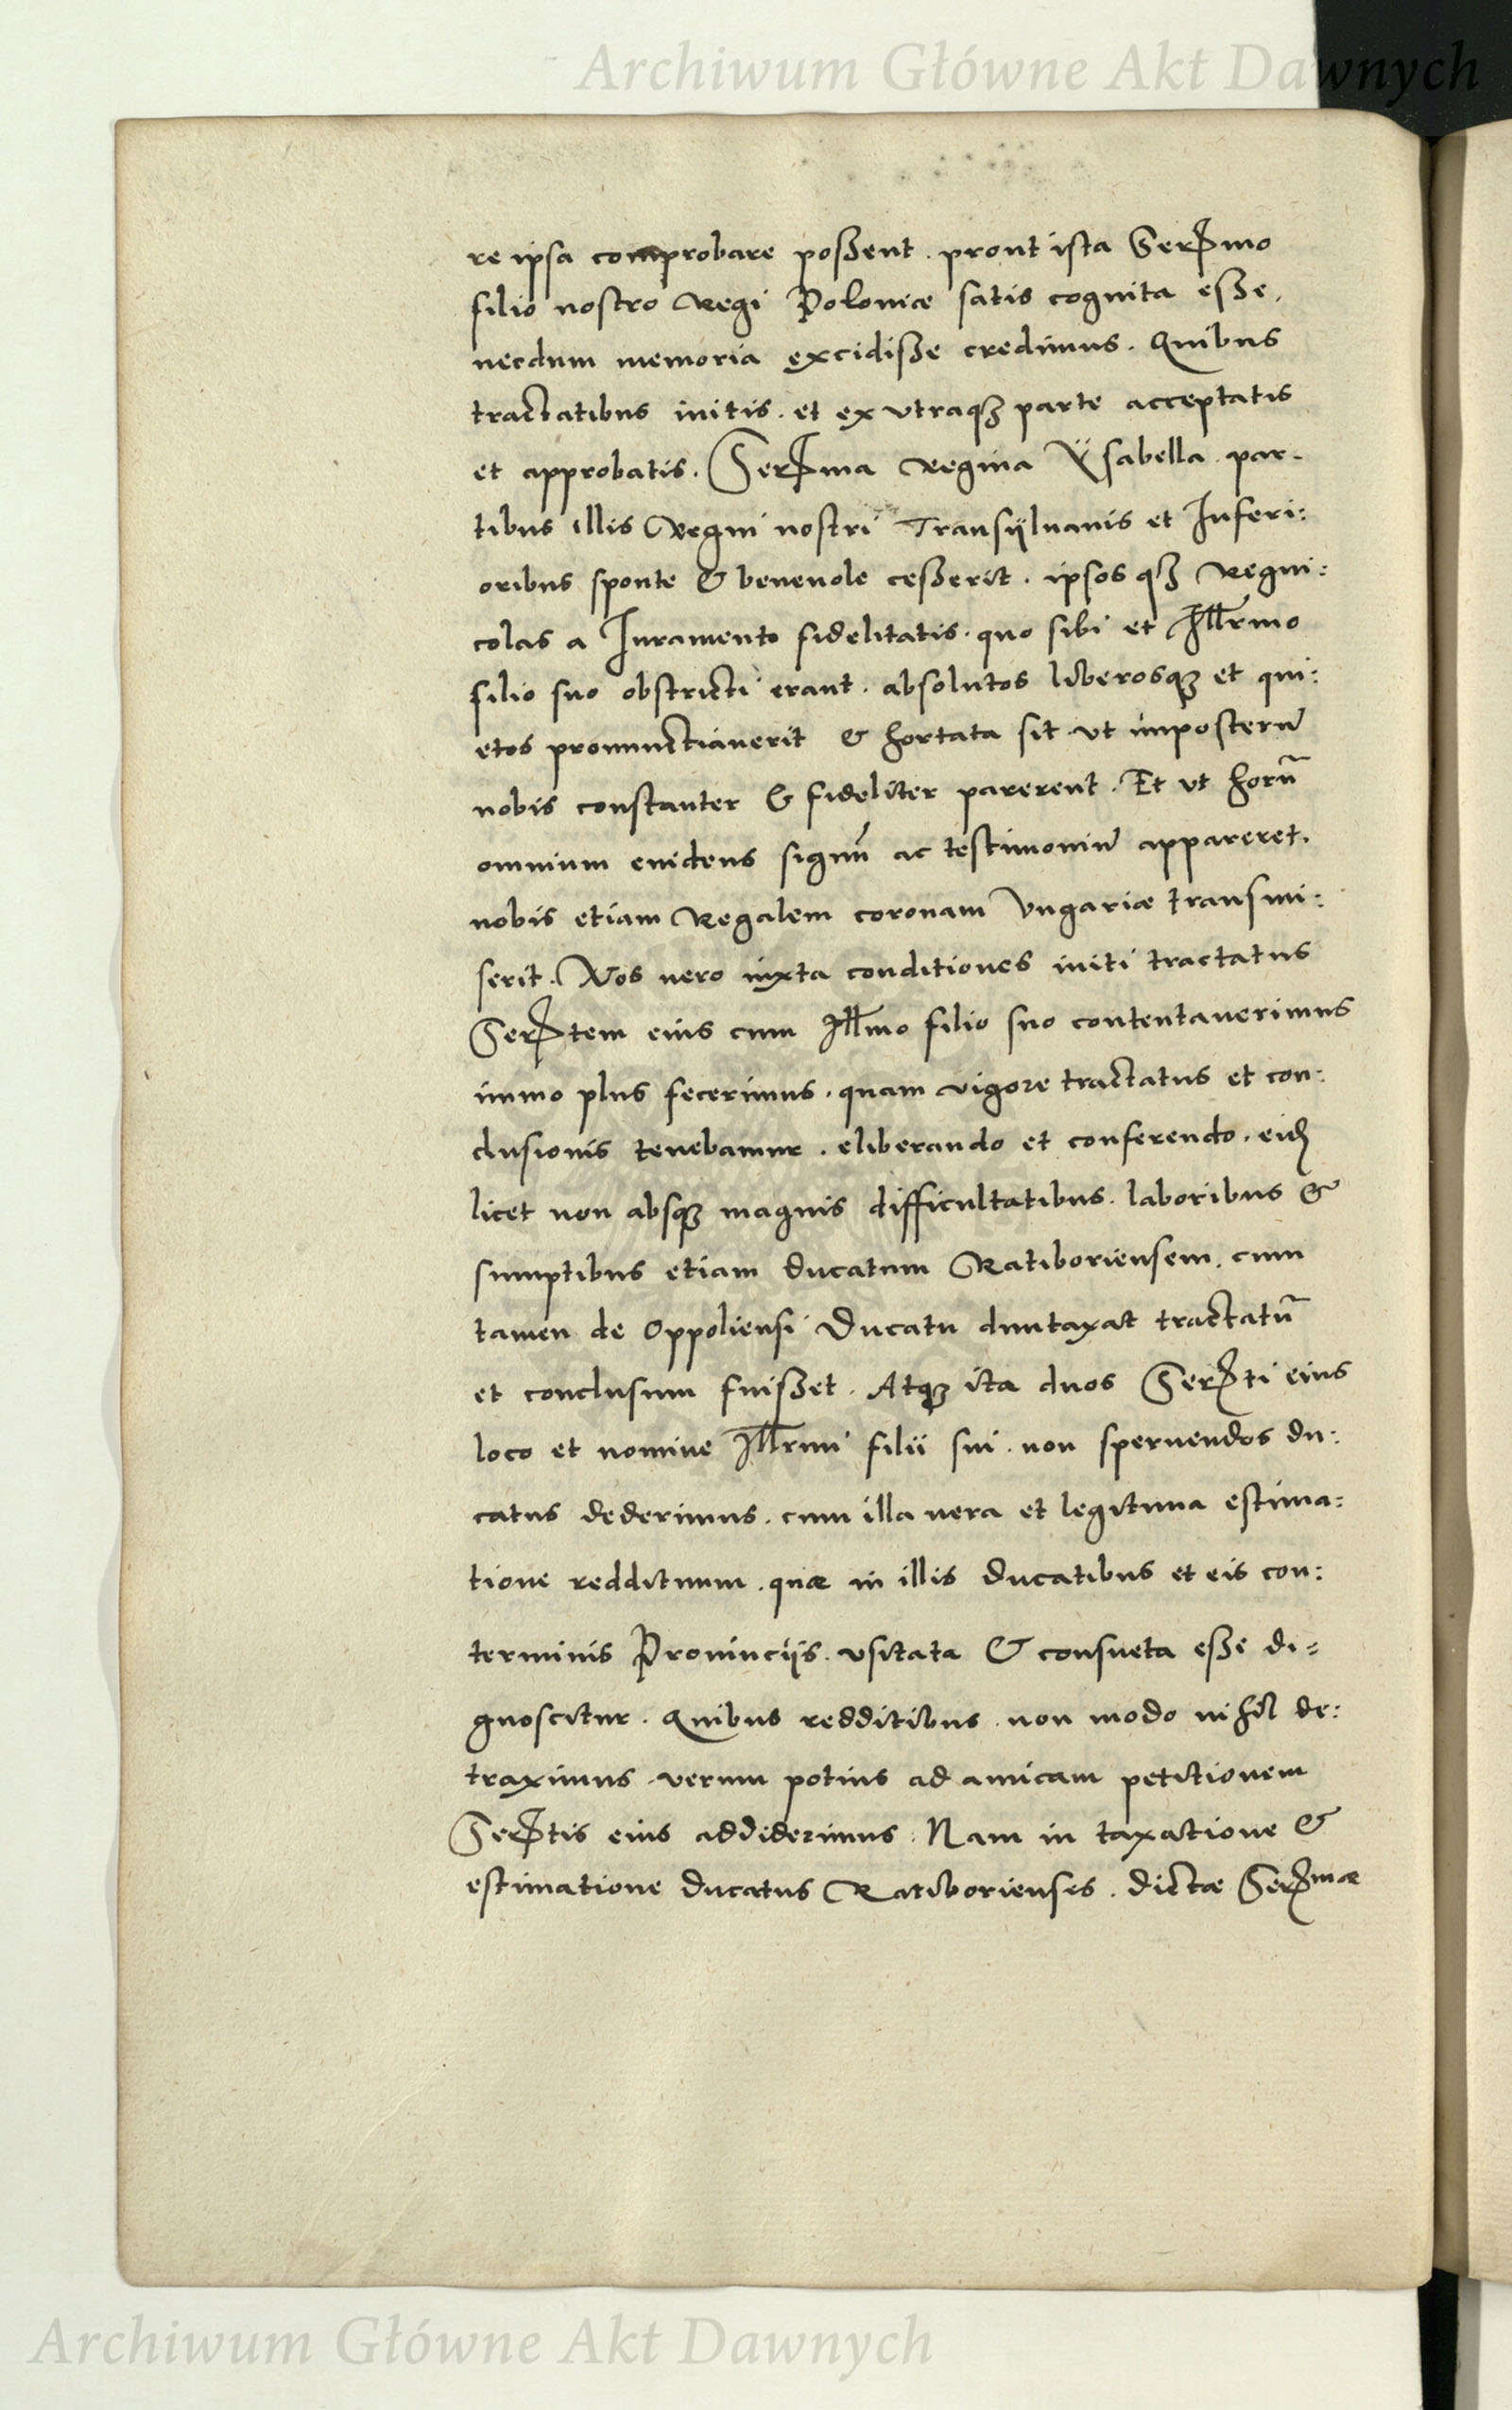 Archiwum Główne Akt Dawnych
re ipsa comprobare poßent. prout ista Serᵐᵒ
filio nostro Regi Poloniæ satis cognita eße,
necdum memoria excidiße credimus. Quibus
tractatibus initis. et ex vtraqꝫ parte acceptatis
et approbatis. Serma Regina Ÿsabella par-
tibus illis Regni nostri Transÿluanis et Inferi:
oribus sponte & beneuole ceßerit. ipsos qꝫ Regni:
colas a Iuramento fidelitatis. quo sibi et Illrmo
filio suo obstricti erant. absolutos liberosqꝫ et qui:
etos pronunctiauerit & hortata sit vt imposterũ
nobis constanter & fideliter parerent. Et vt horũ
omnium euidens signũ ac testimoniũ appareret.
nobis etiam Regalem coronam Vngariæ transmi:
serit. Nos uero iuxta conditiones initi tractatus
Sertem eius cum Illmo filio suo contentauerimus
immo plus fecerimus. quam vigore tractatus et con:
clusionis tenebamur. eliberando et conferendo. eidẽ
licet non absqꝫ magnis difficultatibus. laboribus &
sumptibus etiam ducatum Ratiboriensem. cum
tamen de Oppoliensi Ducatu duntaxat tractatũ
et conclusum fuißet. Atqꝫ ita duos Serti eius
loco et nomine Illrmi filii sui. non spernendos du:
catus dederimus. cum illa uera et legitima estima:
tione reddituum. quæ in illis ducatibus et eis con:
terminis Prouinciis. vsitata & consueta eße di=
gnoscitur. Quibus redditibus non modo nihil de:
traximus. verum potius ad amicam petitionem
Sertis eius addiderimus. Nam in taxatione &
estimatione ducatus Ratiborienses. dictæ Sermæ
Archiwum Główne Akt Dawnych